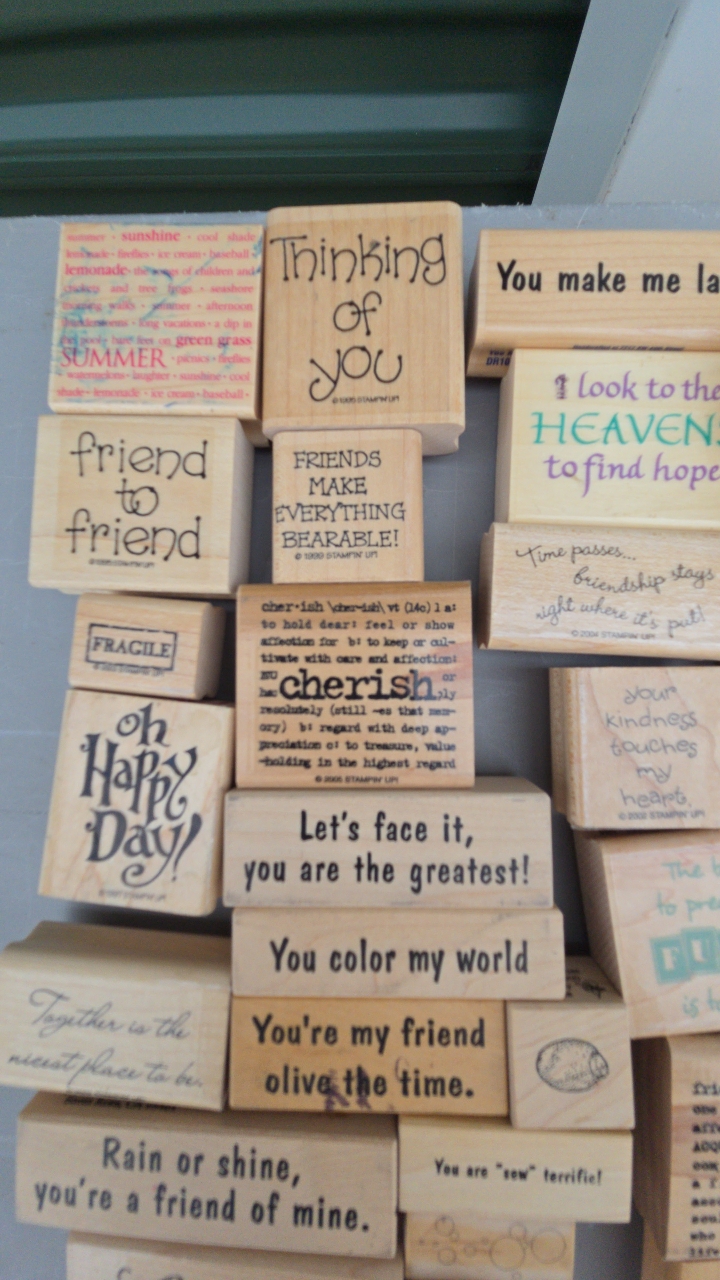 summer · sunshine · cool shade
lemonade · fireflies · ice cream · baseball
lemonade · the songs of children and
and tree frogs · seashore
morning walks · summer · afternoon
· long vacations · a dip in
pool · bare feet on green grass
SUMMER · picnics · fireflies
watermelons · laughter · sunshine · cool
shade · lemonade · ice cream · baseball ·
Thinking
of
you
© 1995 STAMPIN' UP!
You make me la
I look to the
HEAVENS
to find hope
friend
to
friend
FRIENDS
MAKE
EVERYTHING
BEARABLE!
© 1999 STAMPIN' UP!
Time passes...
friendship stays
right where it's put!
© 2004 STAMPIN' UP!
FRAGILE
cher·ish \cher-ish\ vt (14c) 1 a:
to hold dear: feel or show
affection for b: to keep or cul-
tivate with care and affection:
or
cherish
resolutely (still -es that mem-
ory) b: regard with deep ap-
preciation c: to treasure, value
-holding in the highest regard
© 2005 STAMPIN' UP!
your
kindness
touches
my
heart.
© 2002 STAMPIN' UP!
oh
Happy
Day!
Let's face it,
you are the greatest!
The b
to pre
is t
You color my world
Together is the
nicest place to be.
You're my friend
olive the time.
Rain or shine,
you're a friend of mine.
You are "sew" terrific!
frie
one
aff
ACQ
a f
who
life